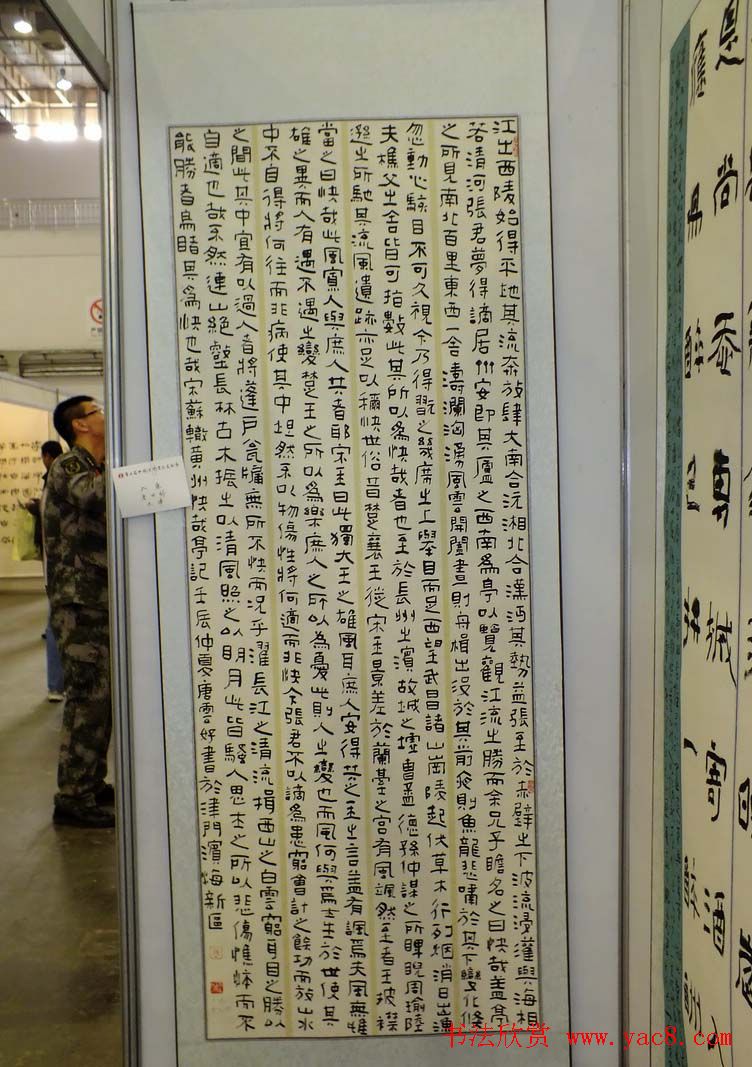 江出西陵始得平地其流奔放肆大南合沅湘北合漢沔其勢益張至於赤壁之下波流浸灌與海相
若清河張君夢得謫居州安即其廬之西南為亭以覽觀江流之勝而余兄子瞻名之曰快哉蓋亭
之所見南北百里東西一舍濤瀾洶湧風雲開闔晝則舟楫出沒於其前夜則魚龍悲嘯於其下變化倏
忽動心駭目不可久視今乃得翫之几席之上舉目而足西望武昌諸山岡陵起伏草木行列烟消日出漁
夫樵父之舍皆可指數此其所以為快哉者也至於長州之濱故城之墟曹孟德孫仲謀之所睥睨周瑜陸
遜之所馳其流風遺跡亦足以稱快世俗昔楚襄王從宋玉景差於蘭臺之宮有風颯然至者王披襟
當之曰快哉此風寡人與庶人共者耶宋玉曰此獨大王之雄風耳庶人安得共之玉之言蓋有諷焉夫風無雄
雄之異而人有遇不遇之變楚王之所以為樂庶人之所以為憂此則人之變也而風何與焉士生於世使其
中不自得將何往而非病使其中坦然不以物傷性將何適而非快今張君不以謫為患窮會計之餘功而放山水
之間此其中宜有以過人者將蓬戶瓮牖無所不快而況乎濯長江之清流揖西山之白雲窮耳目之勝以
自適也哉不然連山絕壑長林古木振之以清風照之以明月此皆騷人思士之所以悲傷憔悴而不
能勝者烏睹其為快也哉宋蘇轍黃州快哉亭記壬辰仲夏唐雲好書於津門濱海新區
书法欣赏 www.yac8.com